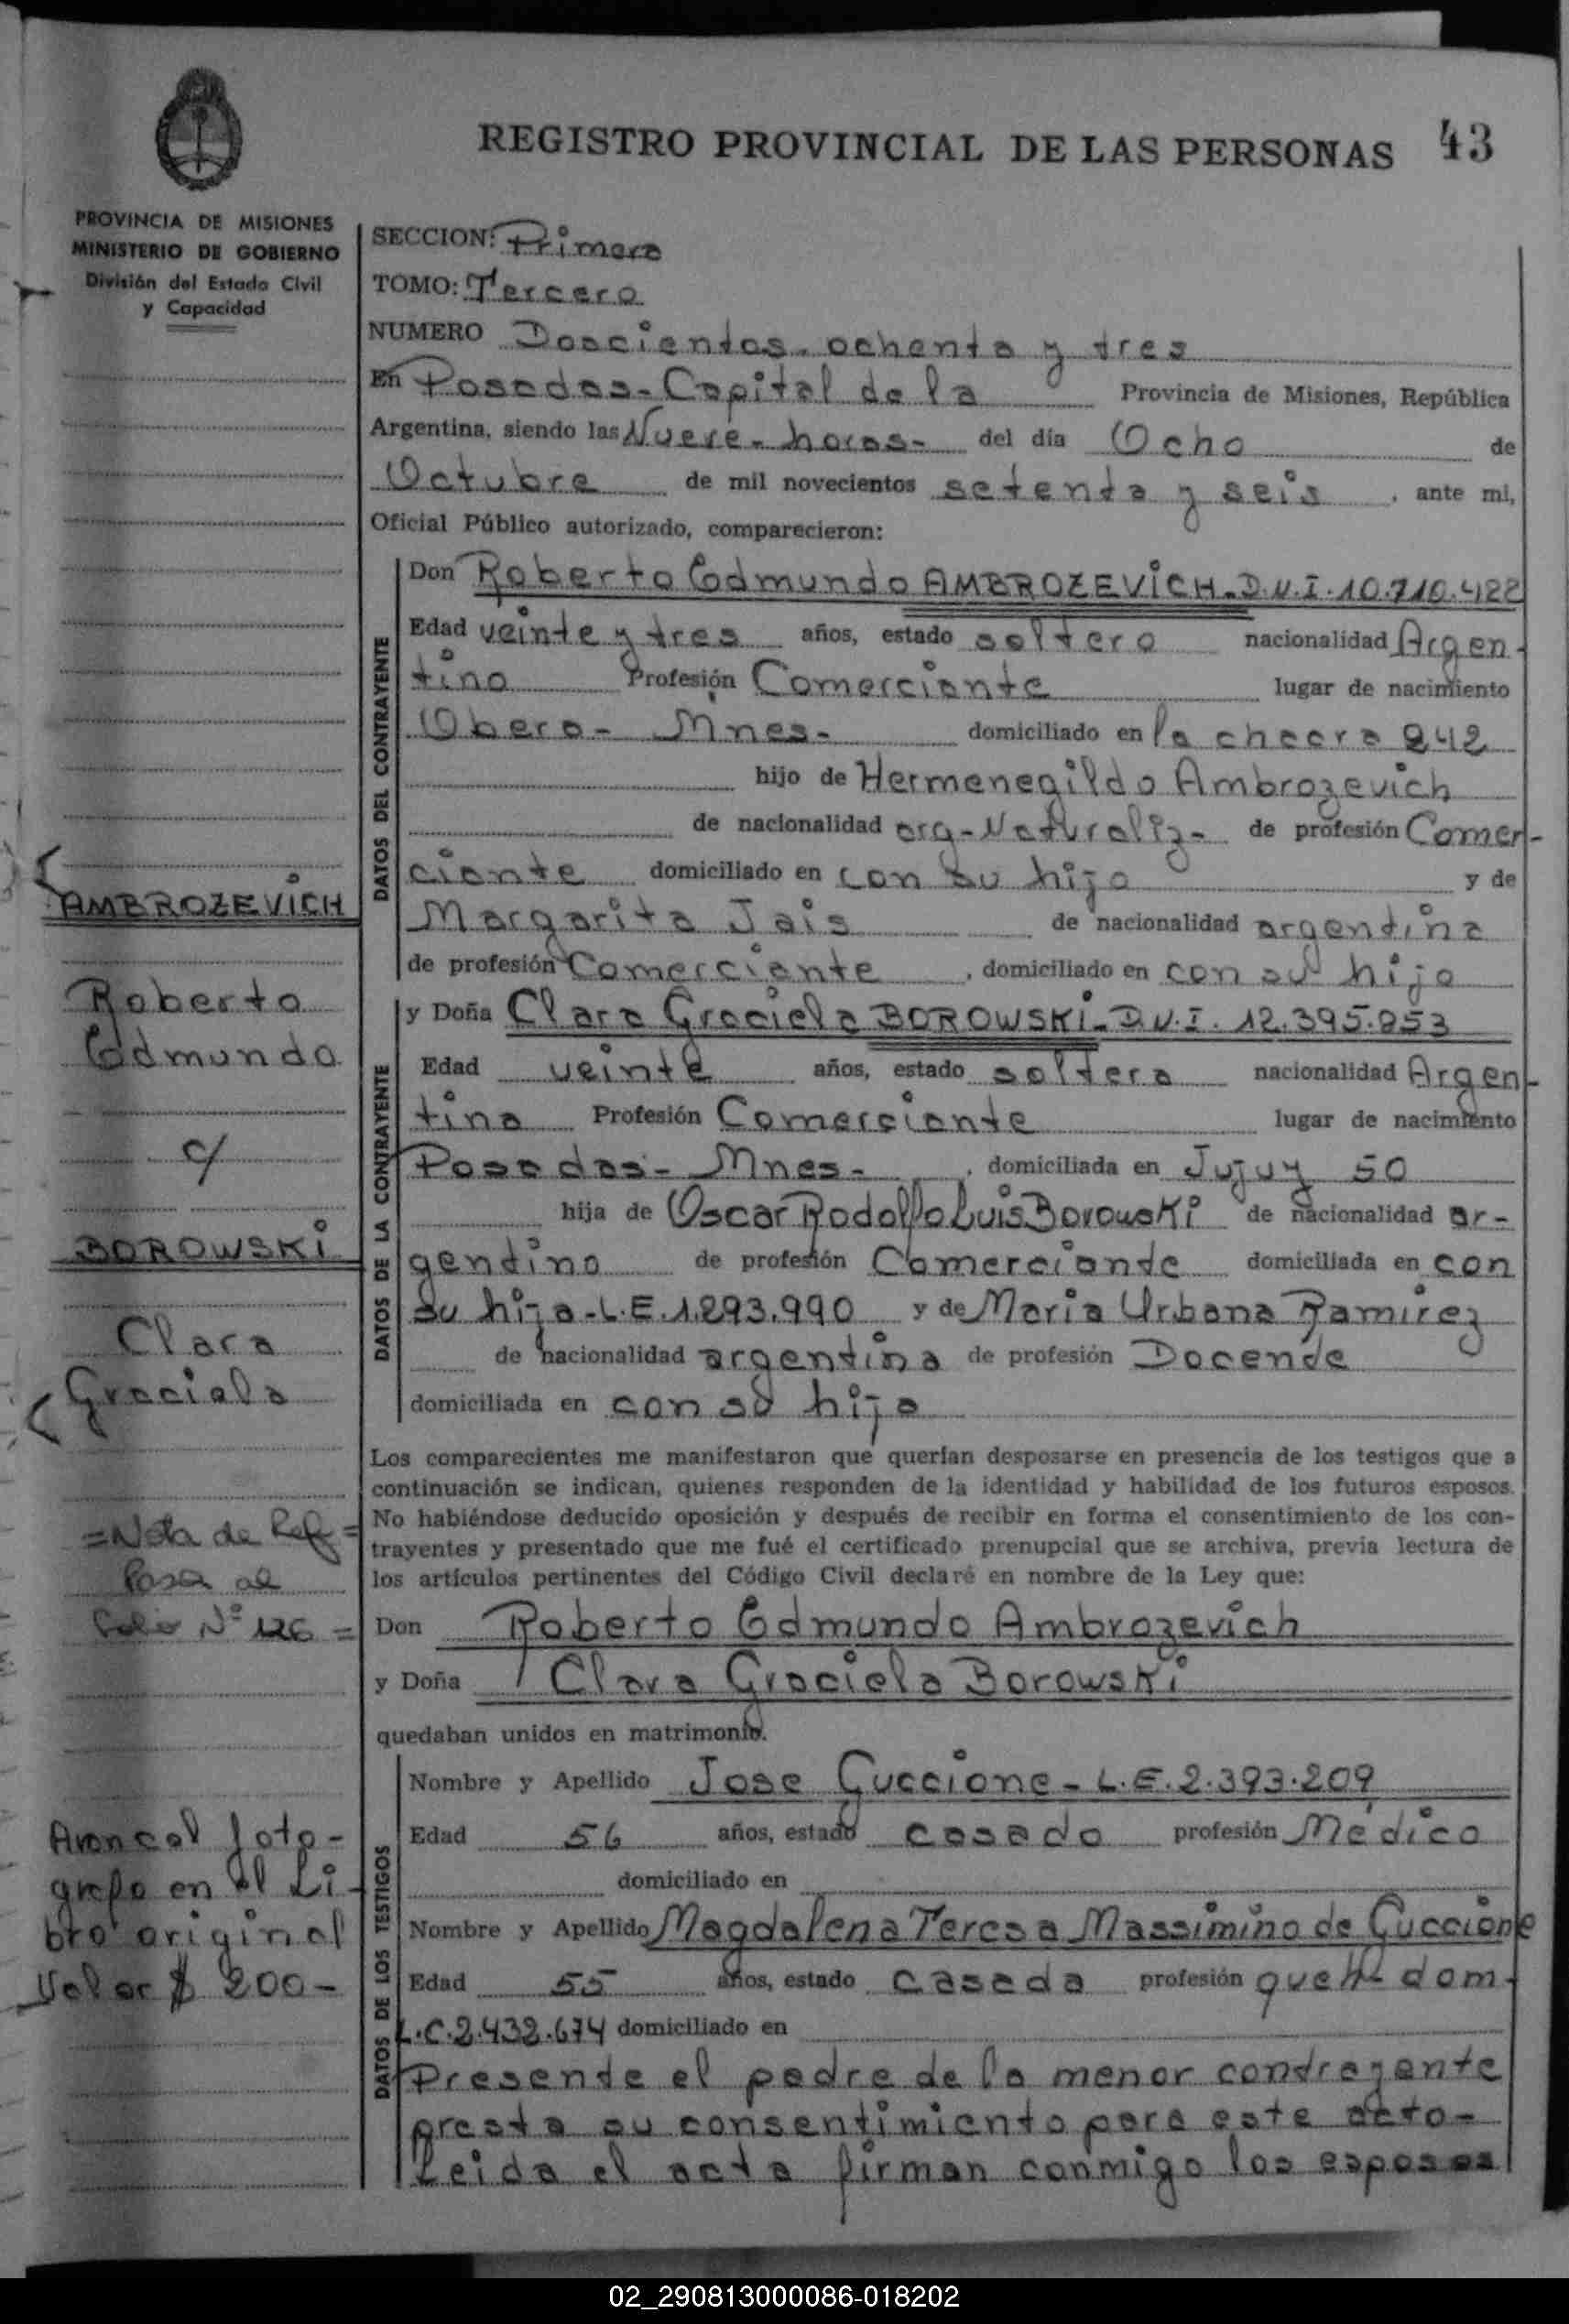 REGISTRO PROVINCIAL DE LAS PERSONAS 43
PROVINCIA DE MISIONES
MINISTERIO DE GOBIERNO
División del Estado Civil
y Capacidad
SECCION: Primera
TOMO: Tercero
NUMERO Doscientos ochenta y tres
En Posadas - Capital de la Provincia de Misiones, República
Argentina, siendo las Nueve - horas - del día Ocho de
Octubre de mil novecientos setenta y seis, ante mi,
Oficial Público autorizado, comparecieron:
DATOS DEL CONTRAYENTE
Don Roberto Edmundo AMBROZEVICH - D.N.I. 10.710.422
Edad veinte y tres años, estado soltero nacionalidad Argen-
tino Profesión Comerciante lugar de nacimiento
Obera - Mnes - domiciliado en la chacra 242
hijo de Hermenegildo Ambrozevich
de nacionalidad arg-Naturaliz- de profesión Comer-
ciante domiciliado en con su hijo y de
Margarita Jais de nacionalidad argentina
de profesión Comerciante, domiciliado en con su hijo
DATOS DE LA CONTRAYENTE
y Doña Clara Graciela BOROWSKI - D.N.I. 12.395.853
Edad veinte años, estado soltera nacionalidad Argen-
tina Profesión Comerciante lugar de nacimiento
Posadas - Mnes -, domiciliada en Jujuy 50
hija de Oscar Rodolfo Luis Borowski de nacionalidad ar-
gentino de profesión Comerciante domiciliada en con
su hija - L.E. 1.293.990 y de Maria Urbana Ramirez
de nacionalidad argentina de profesión Docente
domiciliada en con su hija
Los comparecientes me manifestaron que querían desposarse en presencia de los testigos que a
continuación se indican, quienes responden de la identidad y habilidad de los futuros esposos.
No habiéndose deducido oposición y después de recibir en forma el consentimiento de los con-
trayentes y presentado que me fué el certificado prenupcial que se archiva, previa lectura de
los artículos pertinentes del Código Civil declaré en nombre de la Ley que:
Don Roberto Edmundo Ambrozevich
y Doña Clara Graciela Borowski
quedaban unidos en matrimonio.
DATOS DE LOS TESTIGOS
Nombre y Apellido Jose Guccione - L.E. 2.393.209
Edad 56 años, estado casado profesión Médico
domiciliado en
Nombre y Apellido Magdalena Teresa Massimino de Guccione
Edad 55 años, estado casada profesión queh- dom-
L.C. 2.432.674 domiciliado en
Presente el padre de la menor contrayente
presta su consentimiento para este acto -
Leida el acta firman conmigo los esposos
AMBROZEVICH
Roberto
Edmundo
c/
BOROWSKI
Clara
Graciela
= Nota de Ref =
Pasa al
Folio Nº 126 =
Arancel foto-
grafo en el Li-
bro original
Valor $ 200 -
02_290813000086-018202